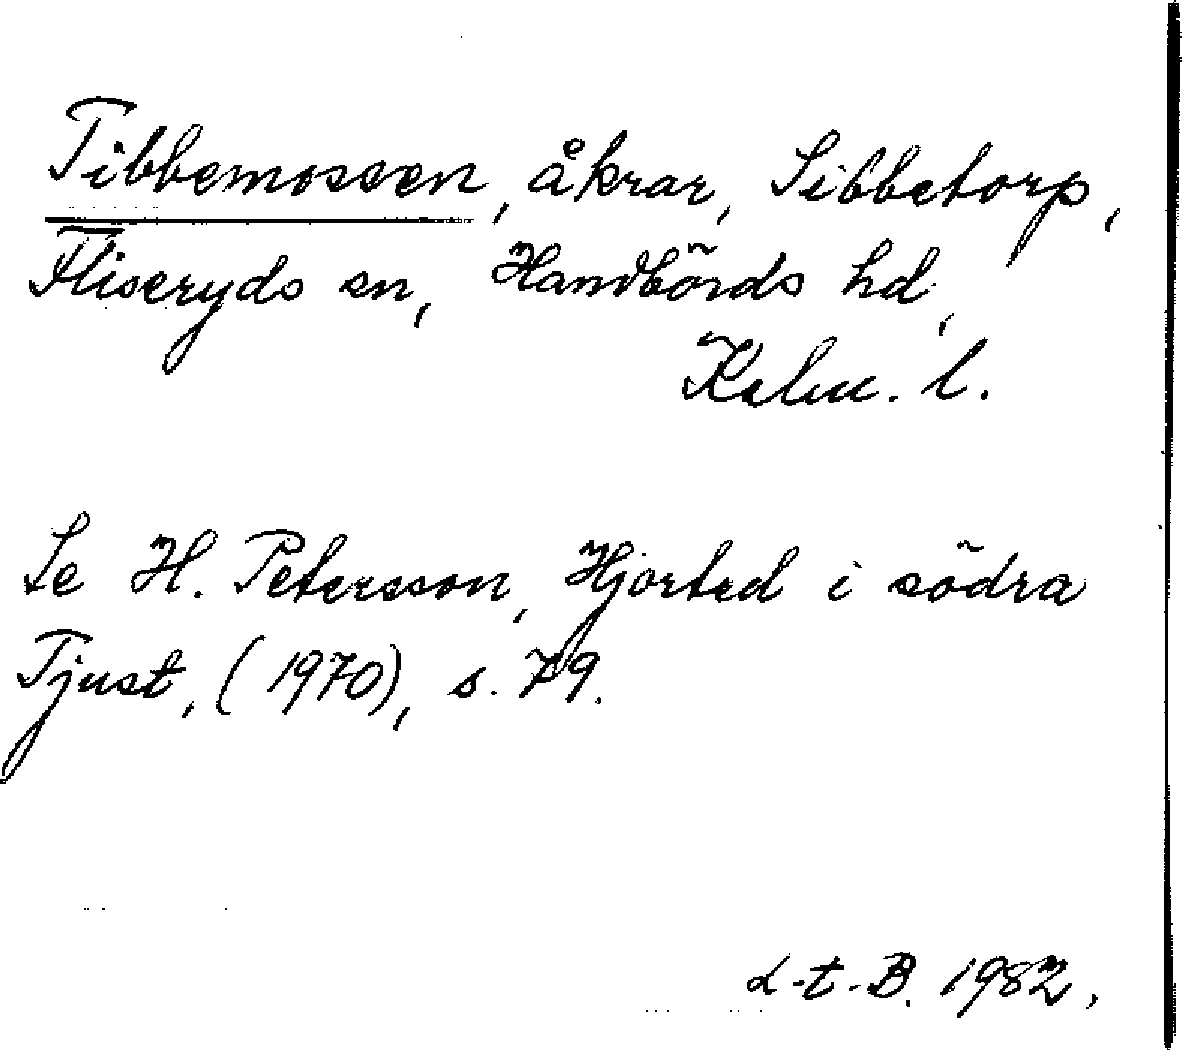 Tibbemossen, åkrar, Sibbetorp,
Fliseryds sn, Handbörds hd,
Kalm. l.
Se H. Petersson, Hjorted i södra
Tjust, (1970), s. 79.
L-t-B. 1982.